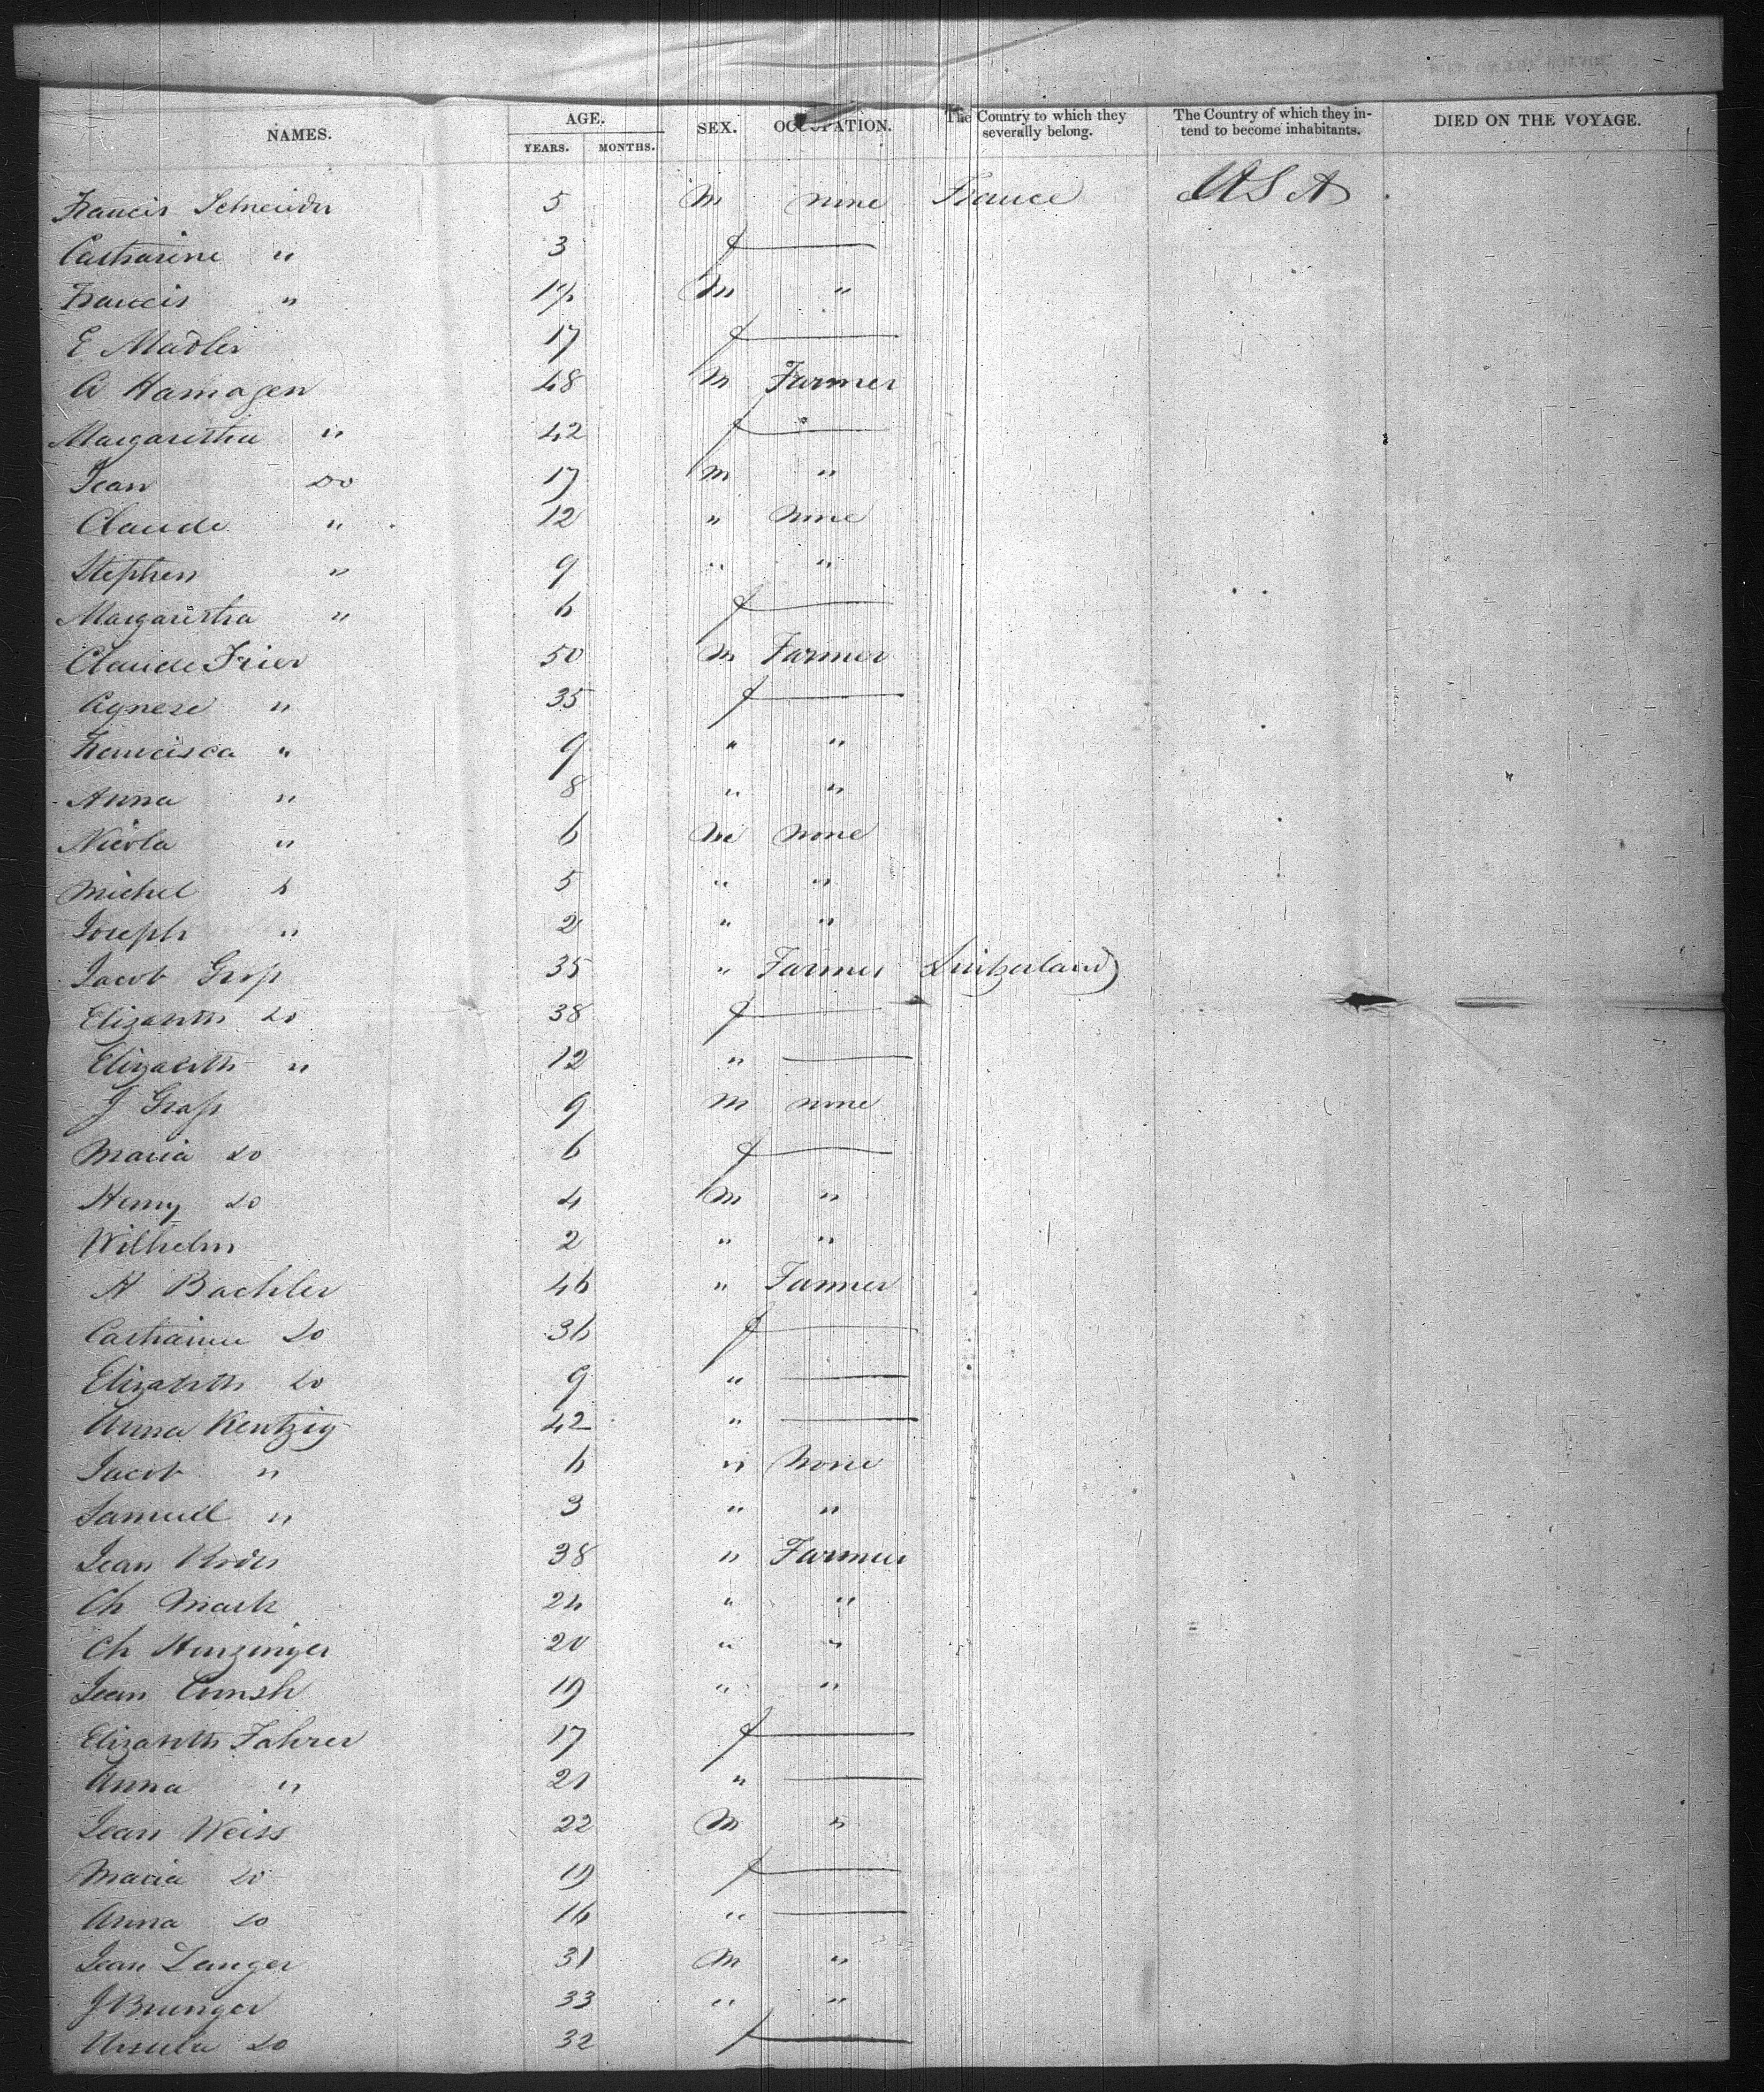 NAMES. AGE. YEARS. MONTHS. SEX. OCCUPATION. The Country to which they severally belong. The Country of which they intend to become inhabitants. DIED ON THE VOYAGE.
Francis Schneider 5 M none France USA
Catharine " 3 f
Francis " 1½ M "
E Madler 17 f
A Hamagen 48 M Farmer
Margaretha " 42 f "
Jean Do 17 M "
Claude " 12 " none
Stephen " 9 " "
Margaretha " 6 f
Claude Frier 50 M Farmer
Agnese " 35 f
Francisca " 9 " "
Anna " 8 " "
Nicola " 6 M none
Michel " 5 " "
Joseph " 2 " "
Jacob Gross 35 " Farmer Switzerland
Elizabeth Do 38 f
Elizabeth " 12 "
J Gross 9 M none
Maria Do 6 f
Henry Do 4 M "
Wilhelm 2 " "
A Bachler 46 " Farmer
Catharine Do 36 f
Elizabeth Do 9 "
Anna Kentzig 42 "
Jacob " 6 " none
Samuel " 3 " "
Jean 38 " Farmer
Ch Mark 24 " "
Ch Hunzinger 20 " "
Jean 19 " "
Elizabeth Fahrer 17 f
Anna " 21 "
Jean Weiss 22 M "
Maria Do 19 f
Anna Do 16 "
Jean Langer 31 M "
J Brunger 33 " "
Ursula Do 32 f